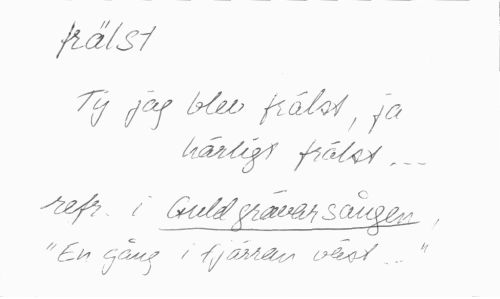 frälst
Ty jag blev frälst, ja
härligt frälst...
refr. i Guldgrävarsången,
"En gång i fjärran väst..."